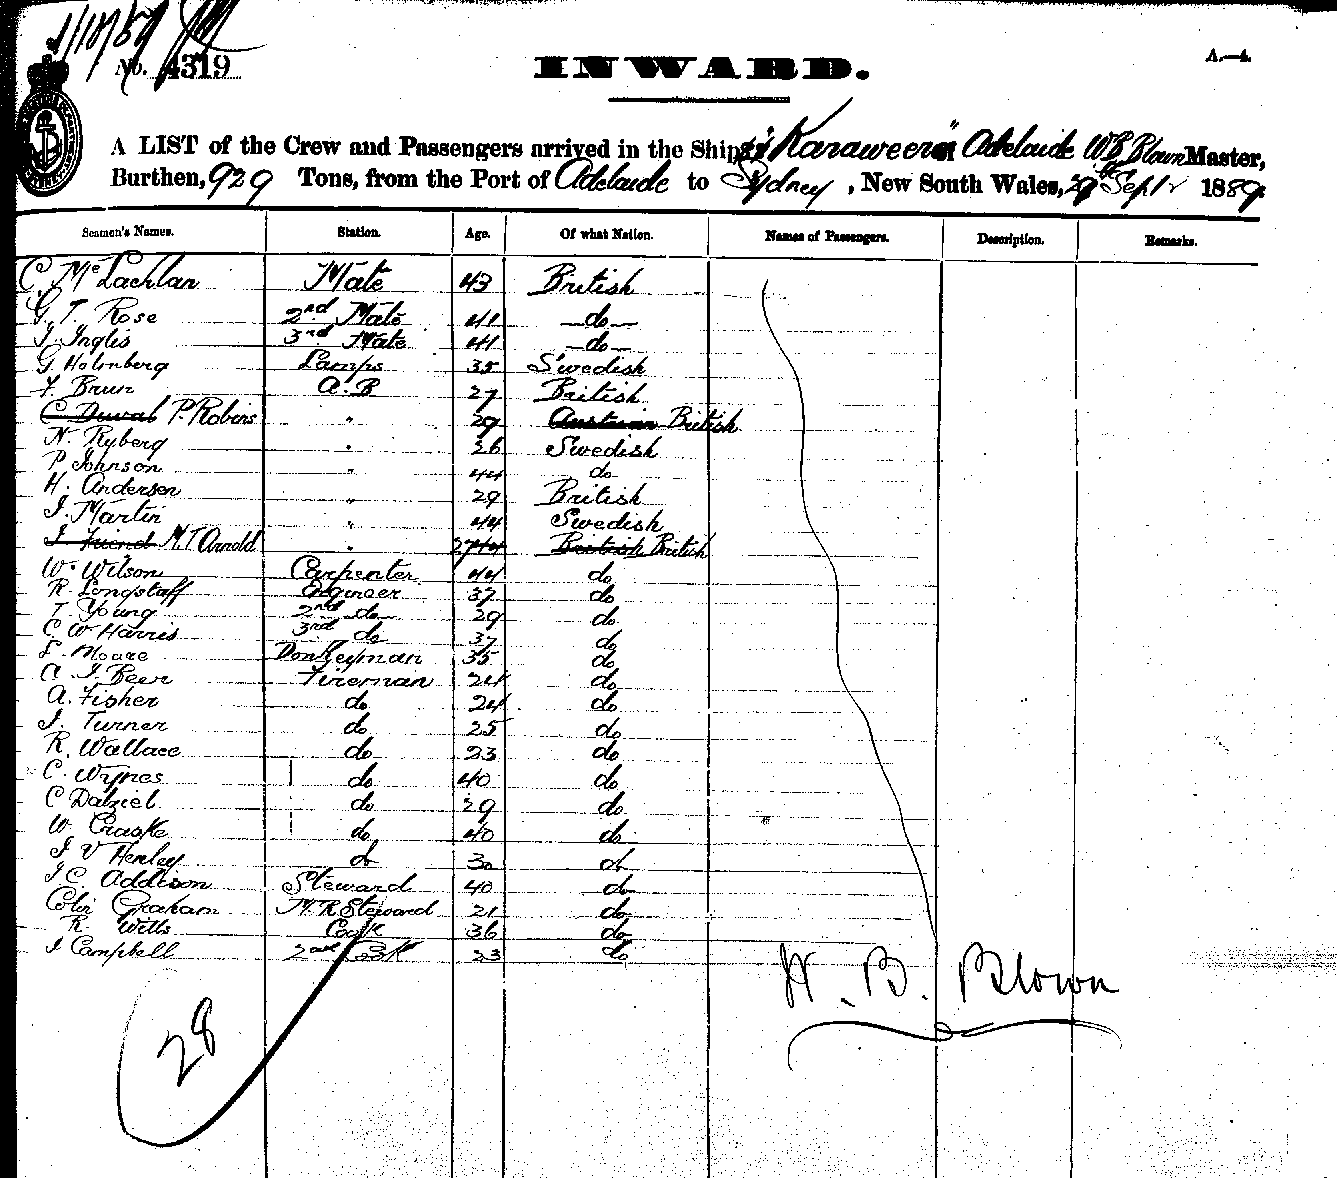 1/10/89
No. 4319
INWARD.
A.—4.
A LIST of the Crew and Passengers arrived in the Ship "Karaweera" of Adelaide W B Blown Master,
Burthen, 929 Tons, from the Port of Adelaide to Sydney, New South Wales, 29th Septr 1889.
Seamen's Names. Station. Age. Of what Nation. Names of Passengers. Description. Remarks.
C. McLachlan Mate 43 British
G. T. Rose 2nd Mate 41 —do—
J. Inglis 3rd Mate 41 —do—
G. Holmberg Lamps 35 Swedish
F. Brun A.B 27 British
C Duval P. Robins " 29 Austrian British
N. Ryberg " 26 Swedish
P. Johnson " 44 do
H. Andersen " 29 British
J. Martin " 44 Swedish
J. Friend M. T Arnold " 27 44 British British
W. Wilson Carpenter 44 do
R. Longstaff Engineer 37 do
T. Young 2nd do 29 do
C W Harris 3rd do 37 do
Moore Donkeyman 35 do
A. J. Beer Fireman 24 do
A. Fisher do 24 do
J. Turner do 25 do
R. Wallace do 23 do
C. Wynes do 40 do
C Dalziel do 29 do
W. Craske do 40 do
J V Henley do 30 do
J C Addison Steward 40 do
Colin Graham M. R Steward 21 do
R. Wills Cook 36 do
J Campbell 2nd Cook 23 do
W. B. Blown
28